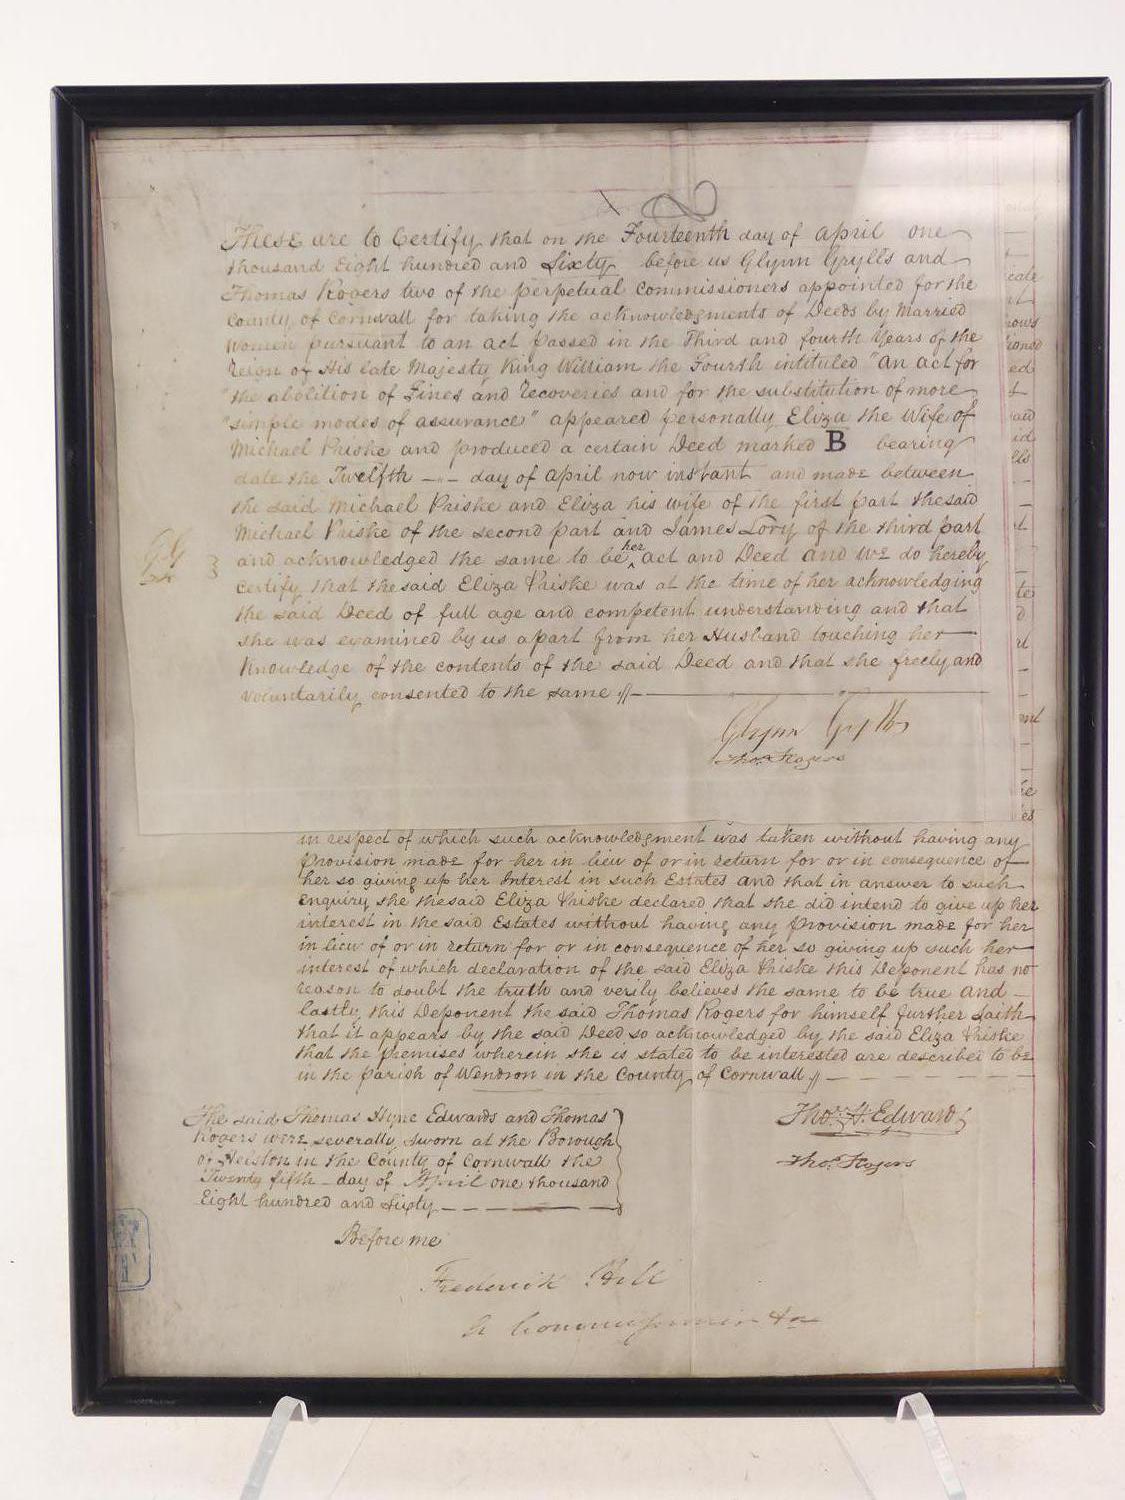 These are to Certify that on the Fourteenth day of April one
thousand Eight hundred and Sixty before us Glynn Grylls and
Thomas Rogers two of the perpetual Commissioners appointed for the
County of Cornwall for taking the acknowledgments of Deeds by Married
Women pursuant to an act passed in the Third and fourth Years of the
reign of His late Majesty King William the Fourth intituled "An act for
"the abolition of Fines and Recoveries and for the substitution of more
"simple modes of assurance" appeared personally Eliza the Wife of
Michael Priske and produced a certain Deed marked B bearing
date the Twelfth day of April now instant and made between
the said Michael Priske and Eliza his wife of the first part the said
Michael Priske of the second part and James Lory of the third part
GG
and acknowledged the same to be her act and Deed and we do hereby
certify that the said Eliza Priske was at the time of her acknowledging
the said Deed of full age and competent understanding and that
she was examined by us apart from her Husband touching her
Knowledge of the contents of the said Deed and that she freely and
voluntarily consented to the same
Glynn Grylls
Thos. Rogers
in respect of which such acknowledgment was taken without having any
Provision made for her in lieu of or in return for or in consequence of
her so giving up her Interest in such Estates and that in answer to such
enquiry she the said Eliza Priske declared that she did intend to give up her
interest in the said Estates without having any Provision made for her
in lieu of or in return for or in consequence of her so giving up such her
interest of which declaration of the said Eliza Priske this Deponent has no
reason to doubt the truth and verily believes the same to be true And
lastly this Deponent the said Thomas Rogers for himself further saith
that it appears by the said Deed so acknowledged by the said Eliza Priske
that the premises wherein she is stated to be interested are described to be
in the parish of Wendron in the County of Cornwall
The said Thomas Edwards and Thomas
Rogers were severally sworn at the Borough
of Helston in the County of Cornwall the
Twenty fifth day of April one thousand
Eight hundred and Sixty
Thos. H. Edwards
Thos. Rogers
Before me
Frederick Hill
A Commissioner &c